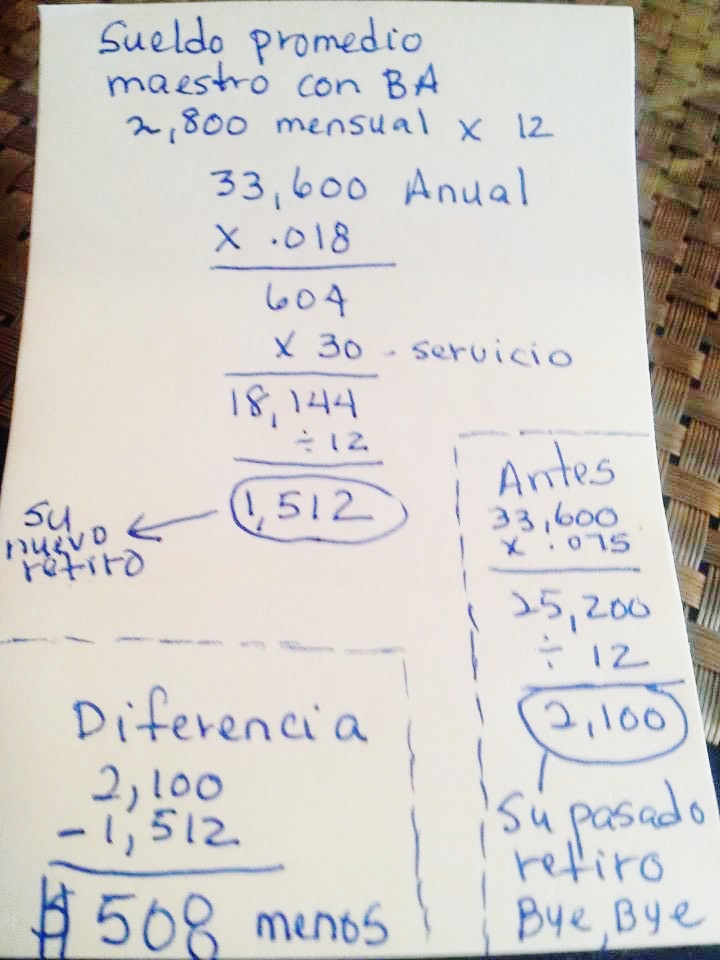 Sueldo promedio
maestro con BA
2,800 mensual x 12
33,600 Anual
x .018
604
x 30 - servicio
18,144
÷ 12
1,512
su
nuevo
retiro
Antes
33,600
x .075
25,200
÷ 12
2,100
Su pasado
retiro
Bye, Bye
Diferencia
2,100
- 1,512
$ 508 menos